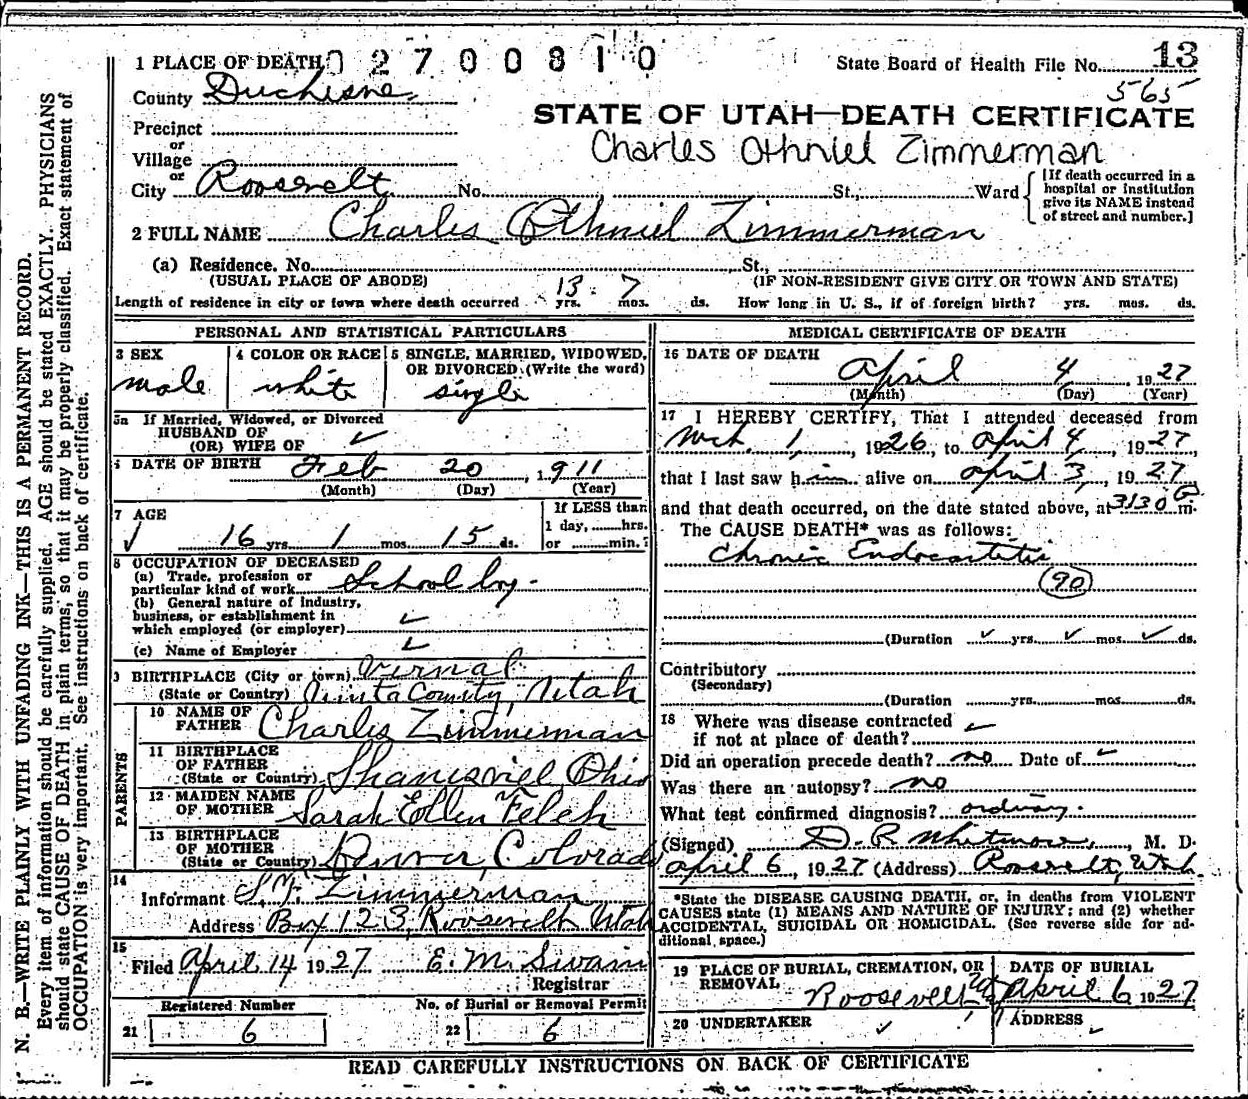 1 PLACE OF DEATH 02700810 State Board of Health File No. 13
County Duchesne 565
STATE OF UTAH—DEATH CERTIFICATE
Precinct
or
Charles Othniel Zimmerman
Village
or
City Roosevelt No. St., Ward
[If death occurred in a
hospital or institution
give its NAME instead
of street and number.]
2 FULL NAME Charles Othniel Zimmerman
(a) Residence. No. St.,
(USUAL PLACE OF ABODE) (IF NON-RESIDENT GIVE CITY OR TOWN AND STATE)
Length of residence in city or town where death occurred 13 yrs. 7 mos. ds. How long in U. S., if of foreign birth? yrs. mos. ds.
PERSONAL AND STATISTICAL PARTICULARS
3 SEX male
4 COLOR OR RACE white
5 SINGLE, MARRIED, WIDOWED,
OR DIVORCED (Write the word)
single
5a If Married, Widowed, or Divorced
HUSBAND OF
(OR) WIFE OF ✓
6 DATE OF BIRTH Feb 20, 1911
(Month) (Day) (Year)
7 AGE
16 yrs. 1 mos. 15 ds.
If LESS than
1 day, hrs.
or min.?
8 OCCUPATION OF DECEASED
(a) Trade, profession or
particular kind of work School boy.
(b) General nature of industry,
business, or establishment in
which employed (or employer) ✓
(c) Name of Employer ✓
9 BIRTHPLACE (City or town) Vernal
(State or Country) Uinta County, Utah
PARENTS
10 NAME OF
FATHER Charles Zimmerman
11 BIRTHPLACE
OF FATHER
(State or Country) Shanesviel Ohio
12 MAIDEN NAME
OF MOTHER Sarah Ellen Felch
13 BIRTHPLACE
OF MOTHER
(State or Country) Denver, Colorado
14
Informant Zimmerman
Address Box 123, Roosevelt Utah
15
Filed April 14 1927 E. M. Swain
Registrar
Registered Number No. of Burial or Removal Permit
21 6 22 6
MEDICAL CERTIFICATE OF DEATH
16 DATE OF DEATH
April 4, 1927
(Month) (Day) (Year)
17 I HEREBY CERTIFY, That I attended deceased from
1, 1926, to April 4, 1927,
that I last saw him alive on April 3, 1927
and that death occurred, on the date stated above, at 3:30 P m.
The CAUSE DEATH* was as follows:
Chronic Endocartitis
90
(Duration ✓ yrs. ✓ mos. ✓ ds.
Contributory
(Secondary)
(Duration yrs. mos. ds.
18 Where was disease contracted
if not at place of death? ✓
Did an operation precede death? no Date of ✓
Was there an autopsy? no
What test confirmed diagnosis? ordinary.
(Signed) D. R. Whitmore, M. D.
April 6, 1927 (Address) Roosevelt, Utah
*State the DISEASE CAUSING DEATH, or, in deaths from VIOLENT
CAUSES state (1) MEANS AND NATURE OF INJURY; and (2) whether
ACCIDENTAL, SUICIDAL OR HOMICIDAL. (See reverse side for ad-
ditional space.)
19 PLACE OF BURIAL, CREMATION, OR
REMOVAL
Roosevelt
DATE OF BURIAL
April 6 1927
20 UNDERTAKER ✓
ADDRESS ✓
READ CAREFULLY INSTRUCTIONS ON BACK OF CERTIFICATE
N. B.—WRITE PLAINLY WITH UNFADING INK—THIS IS A PERMANENT RECORD.
Every item of information should be carefully supplied. AGE should be stated EXACTLY. PHYSICIANS
should state CAUSE OF DEATH in plain terms, so that it may be properly classified. Exact statement of
OCCUPATION is very important. See instructions on back of certificate.